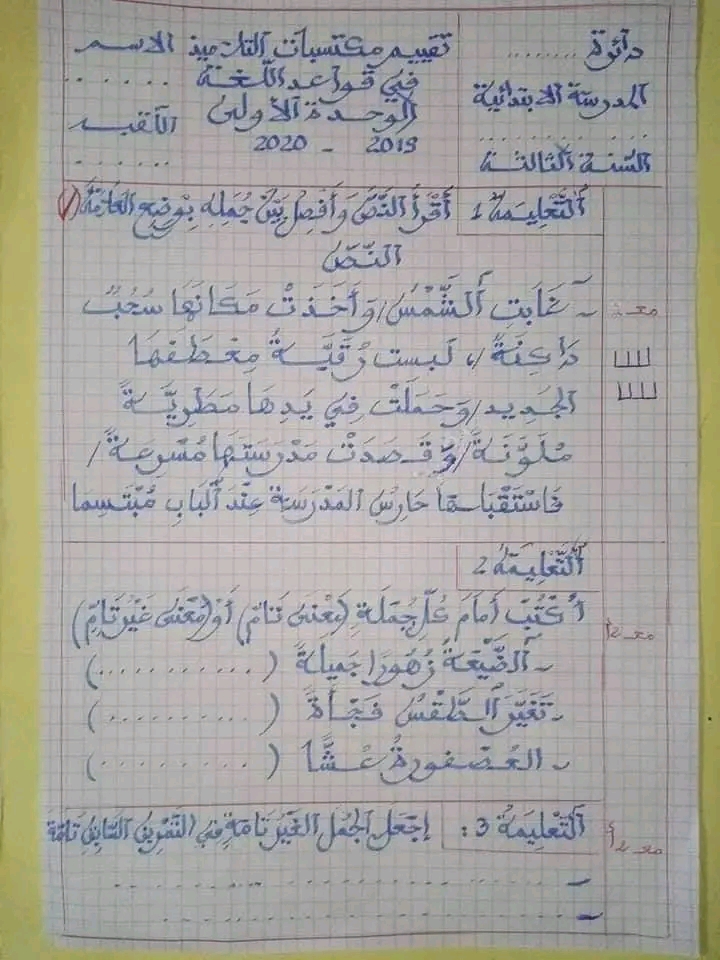 دائرة ........
المدرسة الابتدائية
............
السّنة الثّالثة
تقييم مكتسبات التلاميذ
في قواعد اللّغة
الوحدة الأولى
2019 - 2020
الاسم
......
اللّقب
......
التّعليمة 1
أَقْرَأُ النَّصَّ وَأَفْصِلُ بَيْنَ جُمَلِهِ بِوَضْعِ العَلاَمَةِ (/)
النّصّ
ـ غَابَتِ الشَّمْسُ/ وَأَخَذَتْ مَكَانَهَا سُحُبٌ
دَاكِنَةٌ/، لبست رُقَيَّةُ مِعْطَفَهَا
الجَدِيد/ وَحَمَلَتْ فِي يَدِهَا مَطَرِيَّةً
مُلَوَّنَةً/ وَقَصَدَتْ مَدْرَسَتَهَا مُسْرِعَةً/
فَاسْتَقْبَلَهَا حَارِسُ المَدْرَسَةِ عِنْدَ الْبَابِ مُبْتَسِمًا
مع 1
التَّعْلِيمَةُ 2
أَكْتُبُ أَمَامَ كُلِّ جُمْلَةٍ (مَعْنًى تَامّ) أَوْ (مَعْنًى غَيْرَ تَامّ)
مع 2
ـ الضَّيْعَةُ زُهُورًا جَمِيلَةً (..........)
ـ تَغَيَّرَ الطَّقْسُ فَجْأَةً (..........)
ـ العُصْفُورَةُ عُشًّا (..........)
التَّعْلِيمَةُ 3 :
إِجْعَلِ الجُمَلَ الغَيْرَ تَامَّةٍ في التَّمْرِينِ السَّابِقِ تَامَّةً
مع 2
ـ ....................
ـ ....................